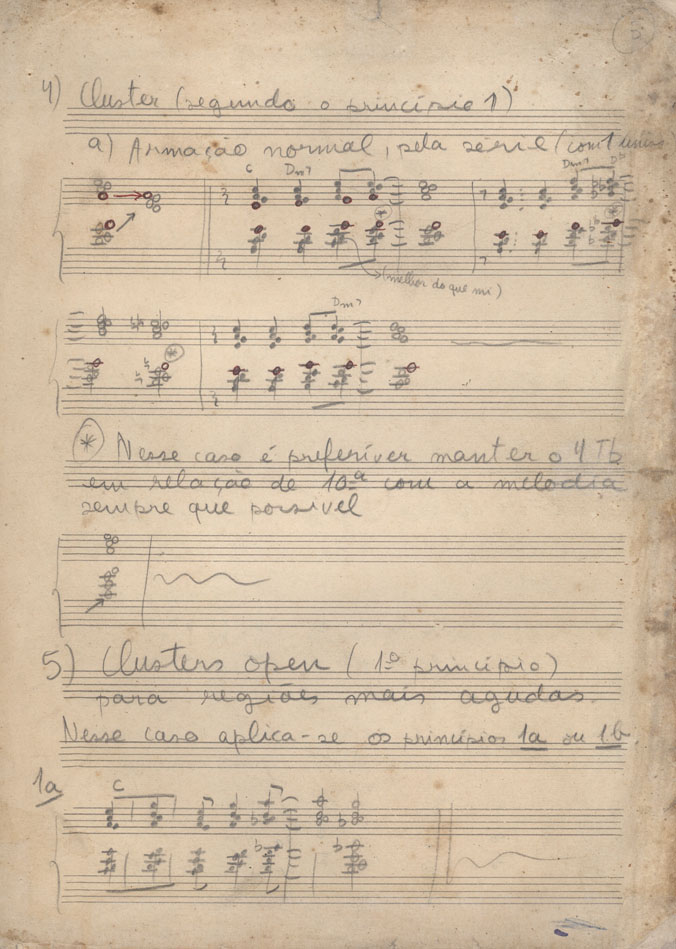 5
4) Cluster (segundo o princípio 1)
a) Armação normal, pela série (com 1
C Dm7 Dm7
(melhor do que mi)
Dm7
* Nesse caso é preferível manter o 4 Tb
em relação de 10ª com a melodia
sempre que possível
5) Clusters open (1º princípio)
para regiões mais agudas.
Nesse caso aplica-se os princípios 1a ou 1b.
1a C